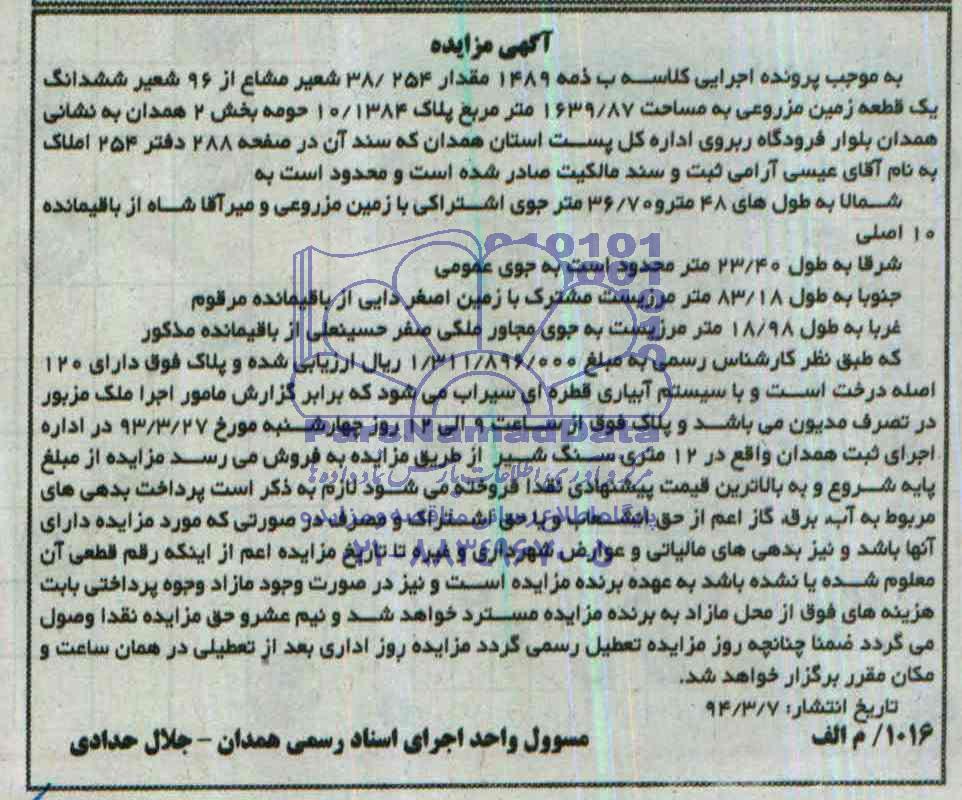 آگهی مزایده
به موجب پرونده اجرایی کلاسه ب ذمه ۱۴۸۹ مقدار ۲۵۴ /۳۸ شعیر مشاع از ۹۶ شعیر ششدانگ
یک قطعه زمین مزروعی به مساحت ۱۶۳۹/۸۷ متر مربع پلاک ۱۰/۱۳۸۴ حومه بخش ۲ همدان به نشانی
همدان بلوار فرودگاه ربروی اداره کل پست استان همدان که سند آن در صفحه ۲۸۸ دفتر ۲۵۴ املاک
به نام آقای عیسی آرامی ثبت و سند مالکیت صادر شده است و محدود است به
شمالا به طول های ۴۸ مترو۳۶/۷۰ متر جوی اشتراکی با زمین مزروعی و میرآقا شاه از باقیمانده
۱۰ اصلی
شرقا به طول ۲۳/۴۰ متر محدود است به جوی عمومی
جنوبا به طول ۸۳/۱۸ متر مرزیست مشترک با زمین اصغر دایی از باقیمانده مرقوم
غربا به طول ۱۸/۹۸ متر مرزیست به جوی مجاور ملکی صفر حسینعلی از باقیمانده مذکور
که طبق نظر کارشناس رسمی به مبلغ ۱/۳۱۱/۸۹۶/۰۰۰ ریال ارزیابی شده و پلاک فوق دارای ۱۲۰
اصله درخت است و با سیستم آبیاری قطره ای سیراب می شود که برابر گزارش مامور اجرا ملک مزبور
در تصرف مدیون می باشد و پلاک فوق از ساعت ۹ الی ۱۲ روز چهارشنبه مورخ ۹۳/۳/۲۷ در اداره
اجرای ثبت همدان واقع در ۱۲ متری سنگ شیر از طریق مزایده به فروش می رسد مزایده از مبلغ
پایه شروع و به بالاترین قیمت پیشنهادی نقدا فروخته می شود لازم به ذکر است پرداخت بدهی های
مربوط به آب، برق، گاز اعم از حق انشعاب و یا حق اشتراک و مصرف در صورتی که مورد مزایده دارای
آنها باشد و نیز بدهی های مالیاتی و عوارض شهرداری و غیره تا تاریخ مزایده اعم از اینکه رقم قطعی آن
معلوم شده یا نشده باشد به عهده برنده مزایده است و نیز در صورت وجود مازاد وجوه پرداختی بابت
هزینه های فوق از محل مازاد به برنده مزایده مسترد خواهد شد و نیم عشرو حق مزایده نقدا وصول
می گردد ضمنا چنانچه روز مزایده تعطیل رسمی گردد مزایده روز اداری بعد از تعطیلی در همان ساعت و
مکان مقرر برگزار خواهد شد.
تاریخ انتشار: ۹۴/۳/۷
۱۰۱۶/ م الف
مسوول واحد اجرای اسناد رسمی همدان – جلال حدادی
ParsNamadData